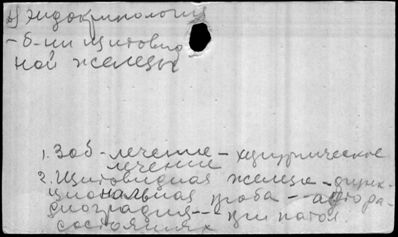 Эндокринология
- б-ни щитовид
ной железы
1. Зоб - лечение - хирургическое
лечение
2. Щитовидная железа - функ-
циональная проба - - автора-
диография - - при патол.
состояниях